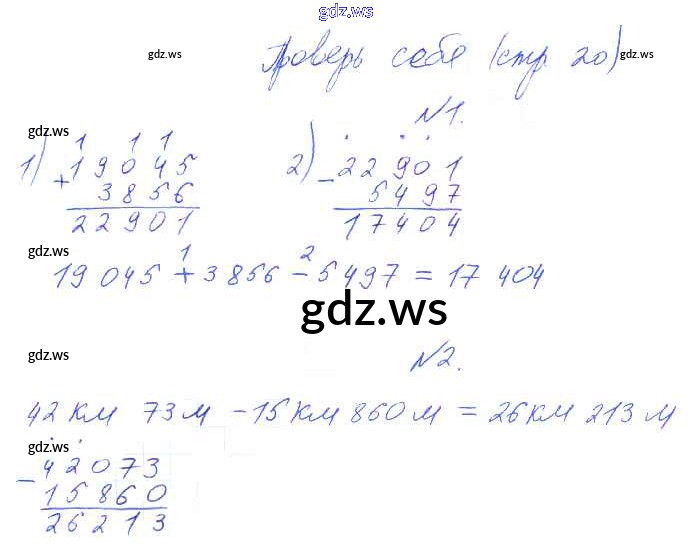 gdz.ws
gdz.ws
Проверь себя (стр 20)
gdz.ws
№1.
gdz.ws
1) 1 1 1
+19045
3856
22901
2) -22901
5497
17404
gdz.ws
1 2
19 045 + 3 856 - 5 497 = 17 404
gdz.ws
gdz.ws
№2.
42 км 73 м - 15 км 860 м = 26 км 213 м
gdz.ws
-42073
15860
26213